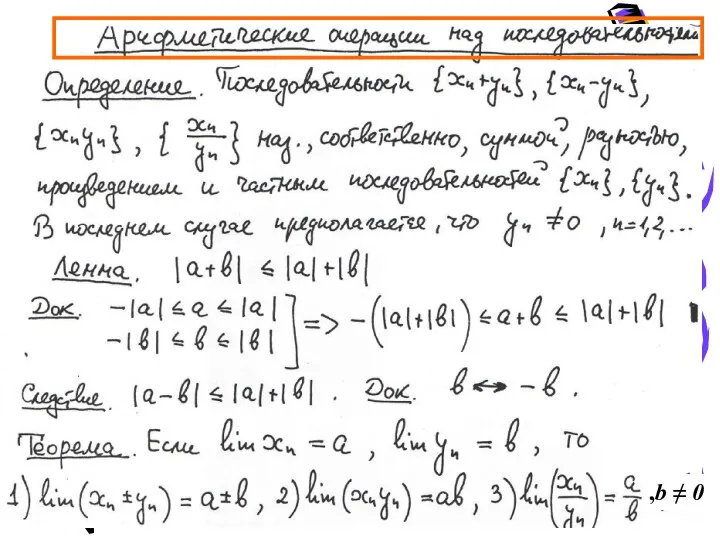 Арифметические операции над последовательностями
Определение. Последовательности {xₙ+yₙ}, {xₙ-yₙ},
{xₙyₙ}, {xₙ/yₙ} наз., соответственно, суммой, разностью,
произведением и частным последовательностей {xₙ}, {yₙ}.
В последнем случае предполагается, что yₙ ≠ 0, n=1,2,...
Лемма. |a+b| ≤ |a|+|b|
Док. -|a| ≤ a ≤ |a|
-|b| ≤ b ≤ |b| ] => -(|a|+|b|) ≤ a+b ≤ |a|+|b|
Следствие. |a-b| ≤ |a|+|b|. Док. b ↔ -b.
Теорема. Если lim xₙ = a, lim yₙ = b, то
1) lim(xₙ ± yₙ) = a ± b, 2) lim(xₙyₙ) = ab, 3) lim(xₙ/yₙ) = a/b ,b ≠ 0